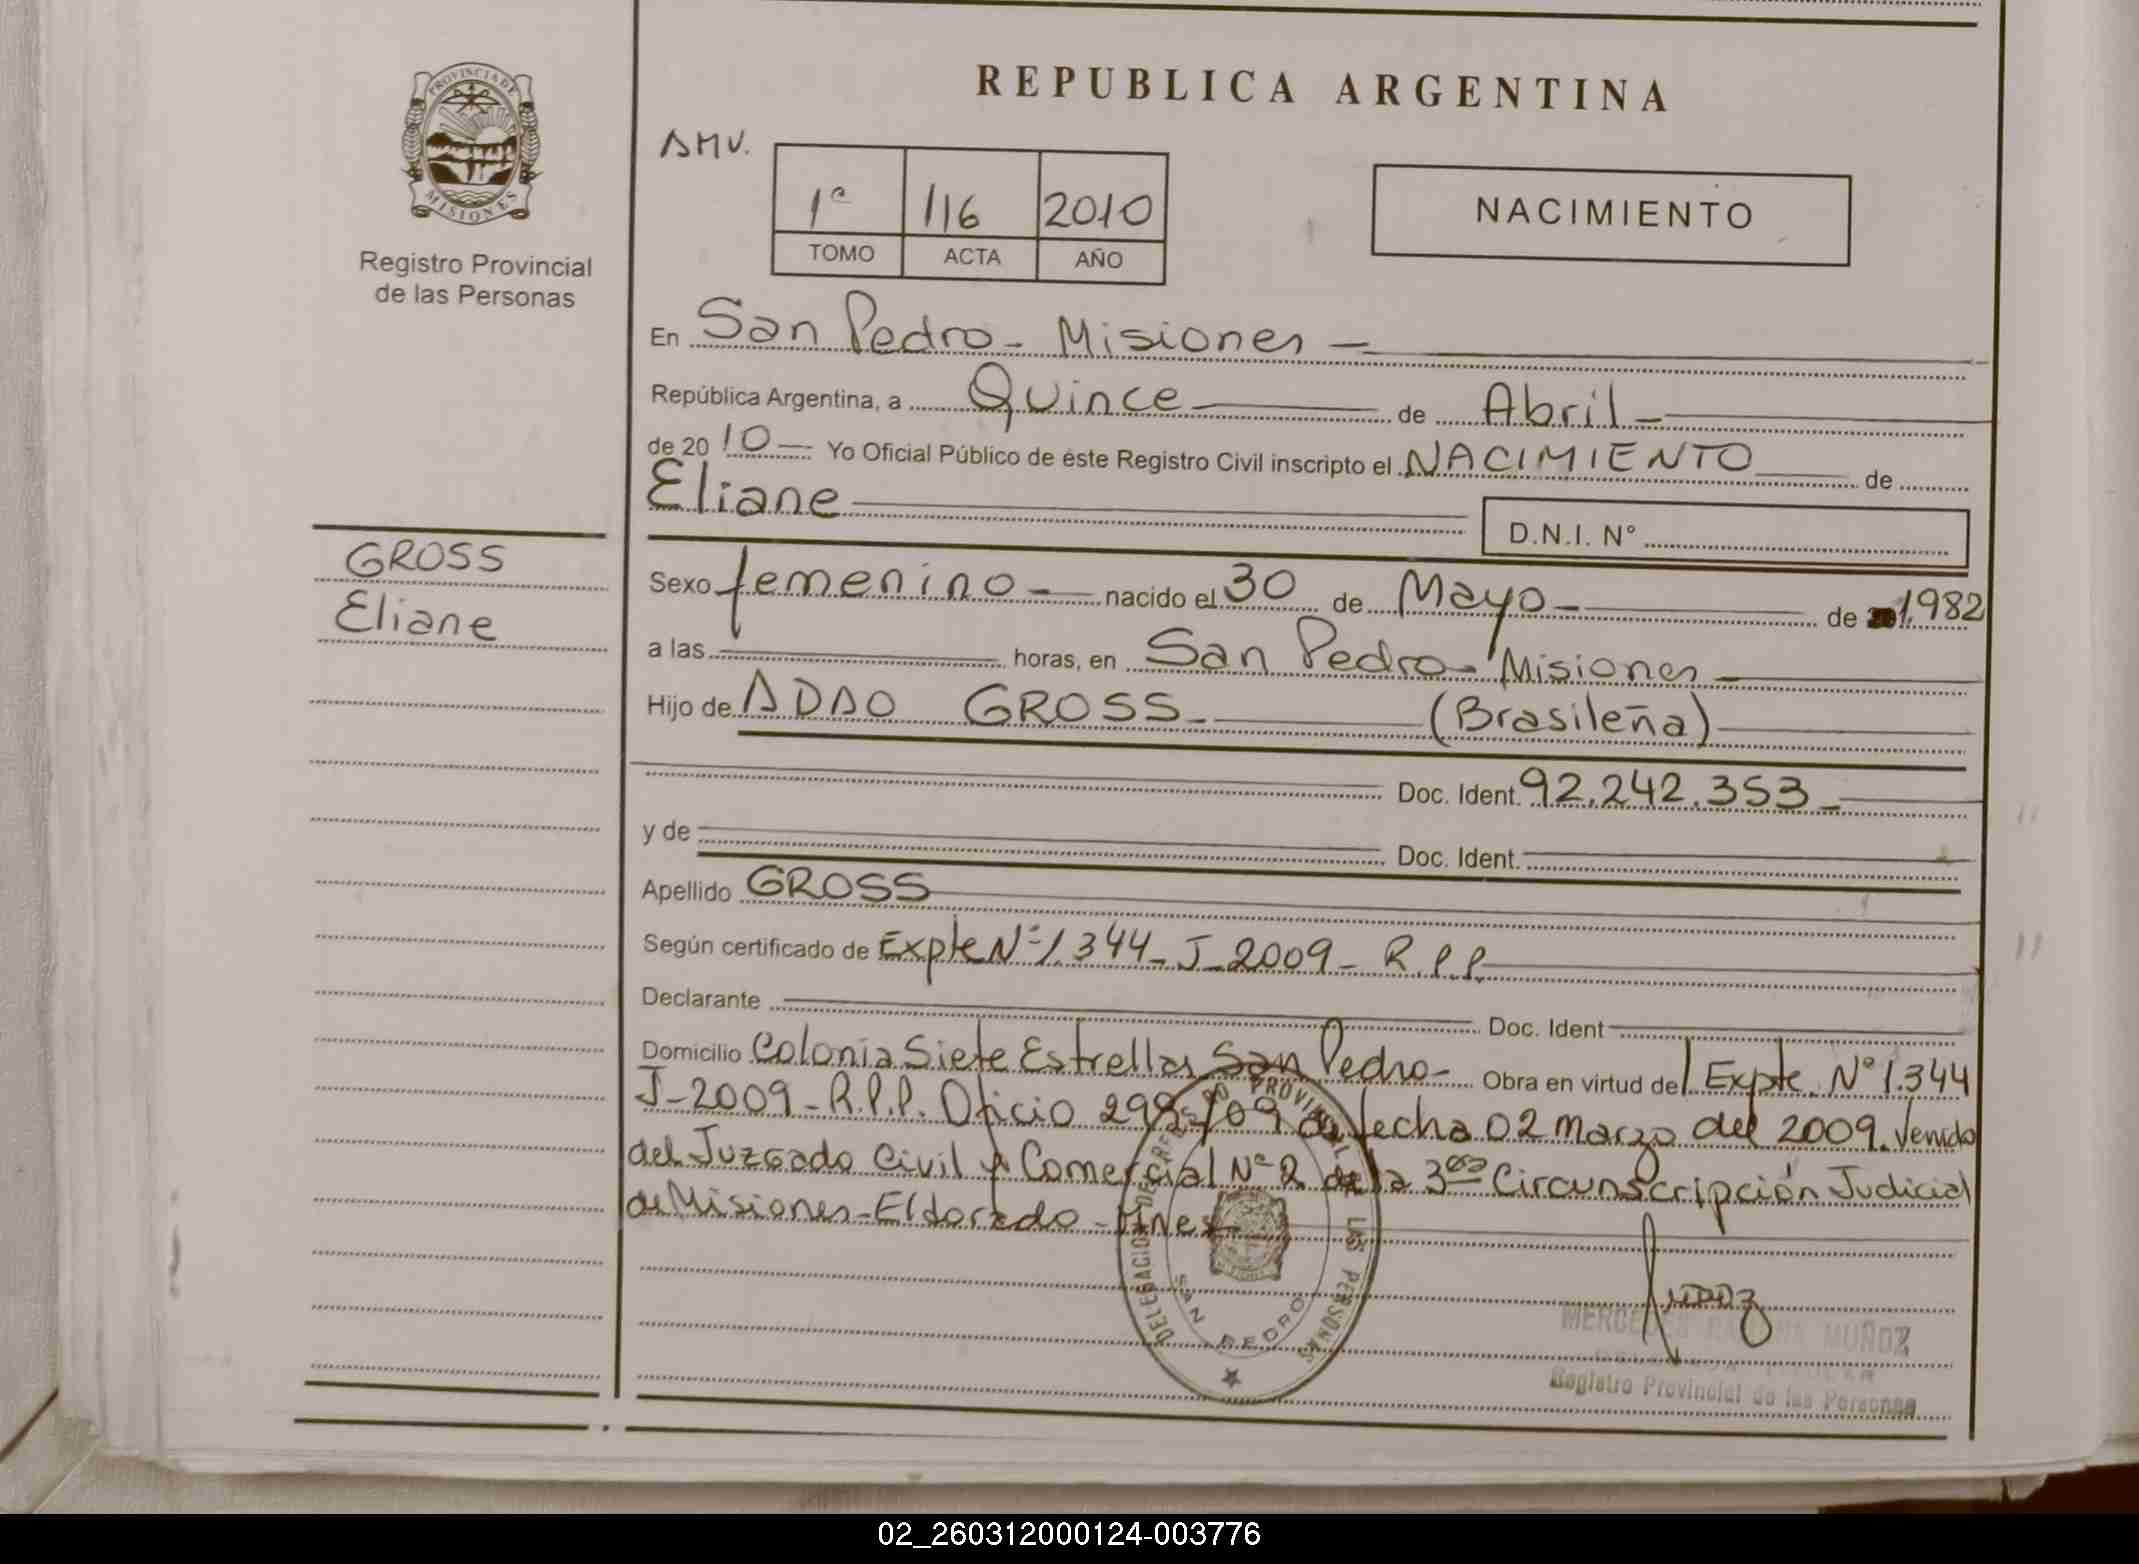 PROVINCIA DE
MISIONES
Registro Provincial
de las Personas
GROSS
Eliane
REPUBLICA ARGENTINA
AMV.
1º 116 2010
TOMO ACTA AÑO
NACIMIENTO
En San Pedro - Misiones -
República Argentina, a Quince de Abril -
de 20 10 - Yo Oficial Público de éste Registro Civil inscripto el NACIMIENTO de
Eliane
D.N.I. N°
Sexo femenino - nacido el 30 de Mayo - de 1.982
a las horas, en San Pedro - Misiones -
Hijo de ADAO GROSS - (Brasileña)
Doc. Ident. 92.242.353 -
y de Doc. Ident.
Apellido GROSS
Según certificado de Expte Nº 1.344 - J - 2009 - R.P.P.
Declarante Doc. Ident
Domicilio Colonia Siete Estrellas San Pedro - Obra en virtud del Expte. Nº 1.344
J - 2009 - R.P.P. Oficio 292/09 de fecha 02 marzo del 2009. Venido
del Juzgado Civil y Comercial Nº 2 de la 3era Circunscripción Judicial
de Misiones - Eldorado - Mnes -
DELEGACION DEL REGISTRO PROVINCIAL DE LAS PERSONAS
SAN PEDRO
MUÑOZ
Registro Provincial de las Personas
02_260312000124-003776